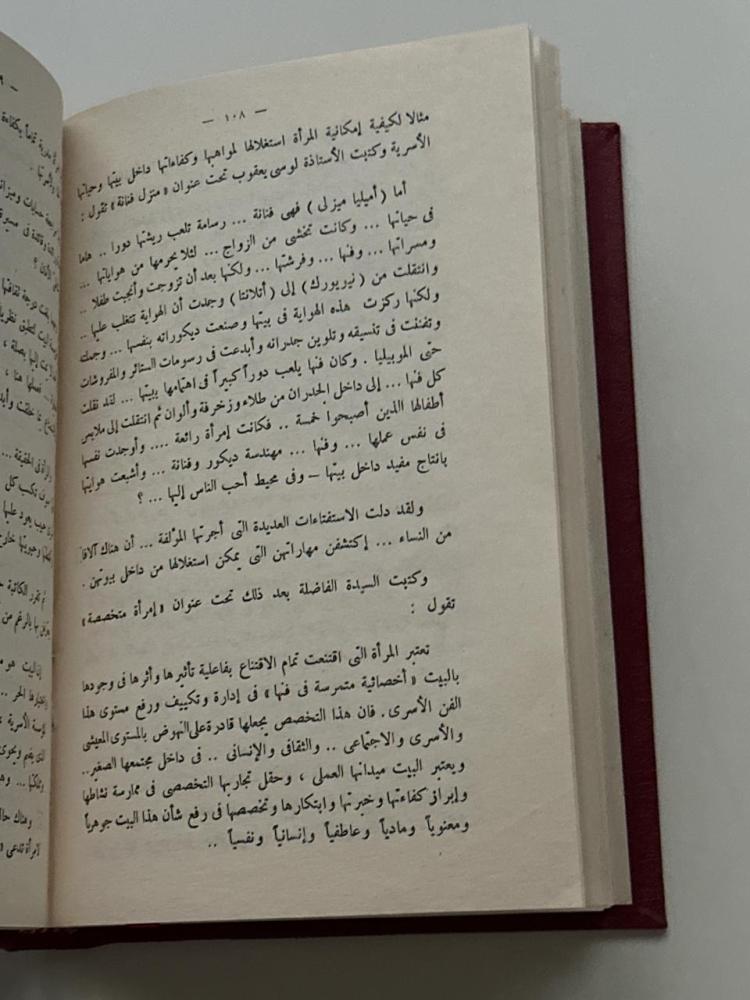 — ١٠٨ —
مثالا لكيفية إمكانية المرأة استغلالها لمواهبها وكفاءاتها داخل بيتها وحياتها
الأسرية وكتبت الأستاذة لوسى يعقوب تحت عنوان « منزل فنانة » تقول :
أما ( أميليا ميزلى ) فهى فنانة ... رسامة تلعب ريشتها دورا .. هاما
فى حياتها ... وكانت تخشى من الزواج ... لئلا يحرمها من هواياتها ...
ومسراتها ... وفنها ... وفرشتها ... ولكنها بعد أن تزوجت وأنجبت طفلا ..
وانتقلت من ( نيريورك ) إلى ( أتلانتا ) وجدت أن الهواية تتغلب عليها ..
ولكنها ركزت هذه الهواية فى بيتها وصنعت ديكوراته بنفسها ... وجملت
وتفننت فى تنسيقه وتلوين جدرانه وأبدعت فى رسومات الستائر والمفروشات
حتى الموبيليا . وكان فنها يلعب دوراً كبيراً فى اهتمامها ببيتها ... لقد نقلت
كل فنها ... إلى داخل الجدران من طلاء وزخرفة وألوان ثم انتقلت إلى ملابس
أطفالها االذين أصبحوا خمسة .. فكانت إمرأة رائعة .... وأوجدت نفسها
فى نفس عملها ... وفنها ... مهندسة ديكور وفنانة ... وأشبعت هوايتها
بانتاج مفيد داخل بيتها — وفى محيط أحب الناس إليها ... ؟
ولقد دلت الاستفتاءات العديدة التى أجرتها المؤلفة ... أن هناك آلافا
من النساء ... إكتشفن مهاراتهن التى يمكن استغلالها من داخل بيوتهن .
وكتبت السيدة الفاضلة بعد ذلك تحت عنوان « إمرأة متخصصة »
تقول :
تعتبر المرأة التى اقتنعت تمام الاقتناع بفاعلية تأثيرها وأثرها فى وجودها
بالبيت « أخصائية متمرسة فى فنها » فى إدارة وتكييف ورفع مستوى هذا
الفن الأسرى . فان هذا التخصص يجعلها قادرة على النهوض بالمستوى المعيشى
والأسرى والاجتماعى .. والثقافى والإنسانى .. فى داخل مجتمعها الصغير ..
ويعتبر البيت ميدانها العملى ، وحقل تجاربها التخصصى فى ممارسة نشاطها
وإبراز كفاءتها وخبرتها وابتكارها وتخصصها فى رفع شأن هذا البيت جوهرياً
ومعنوياً ومادياً وعاطفياً وإنسانياً ونفسياً ..